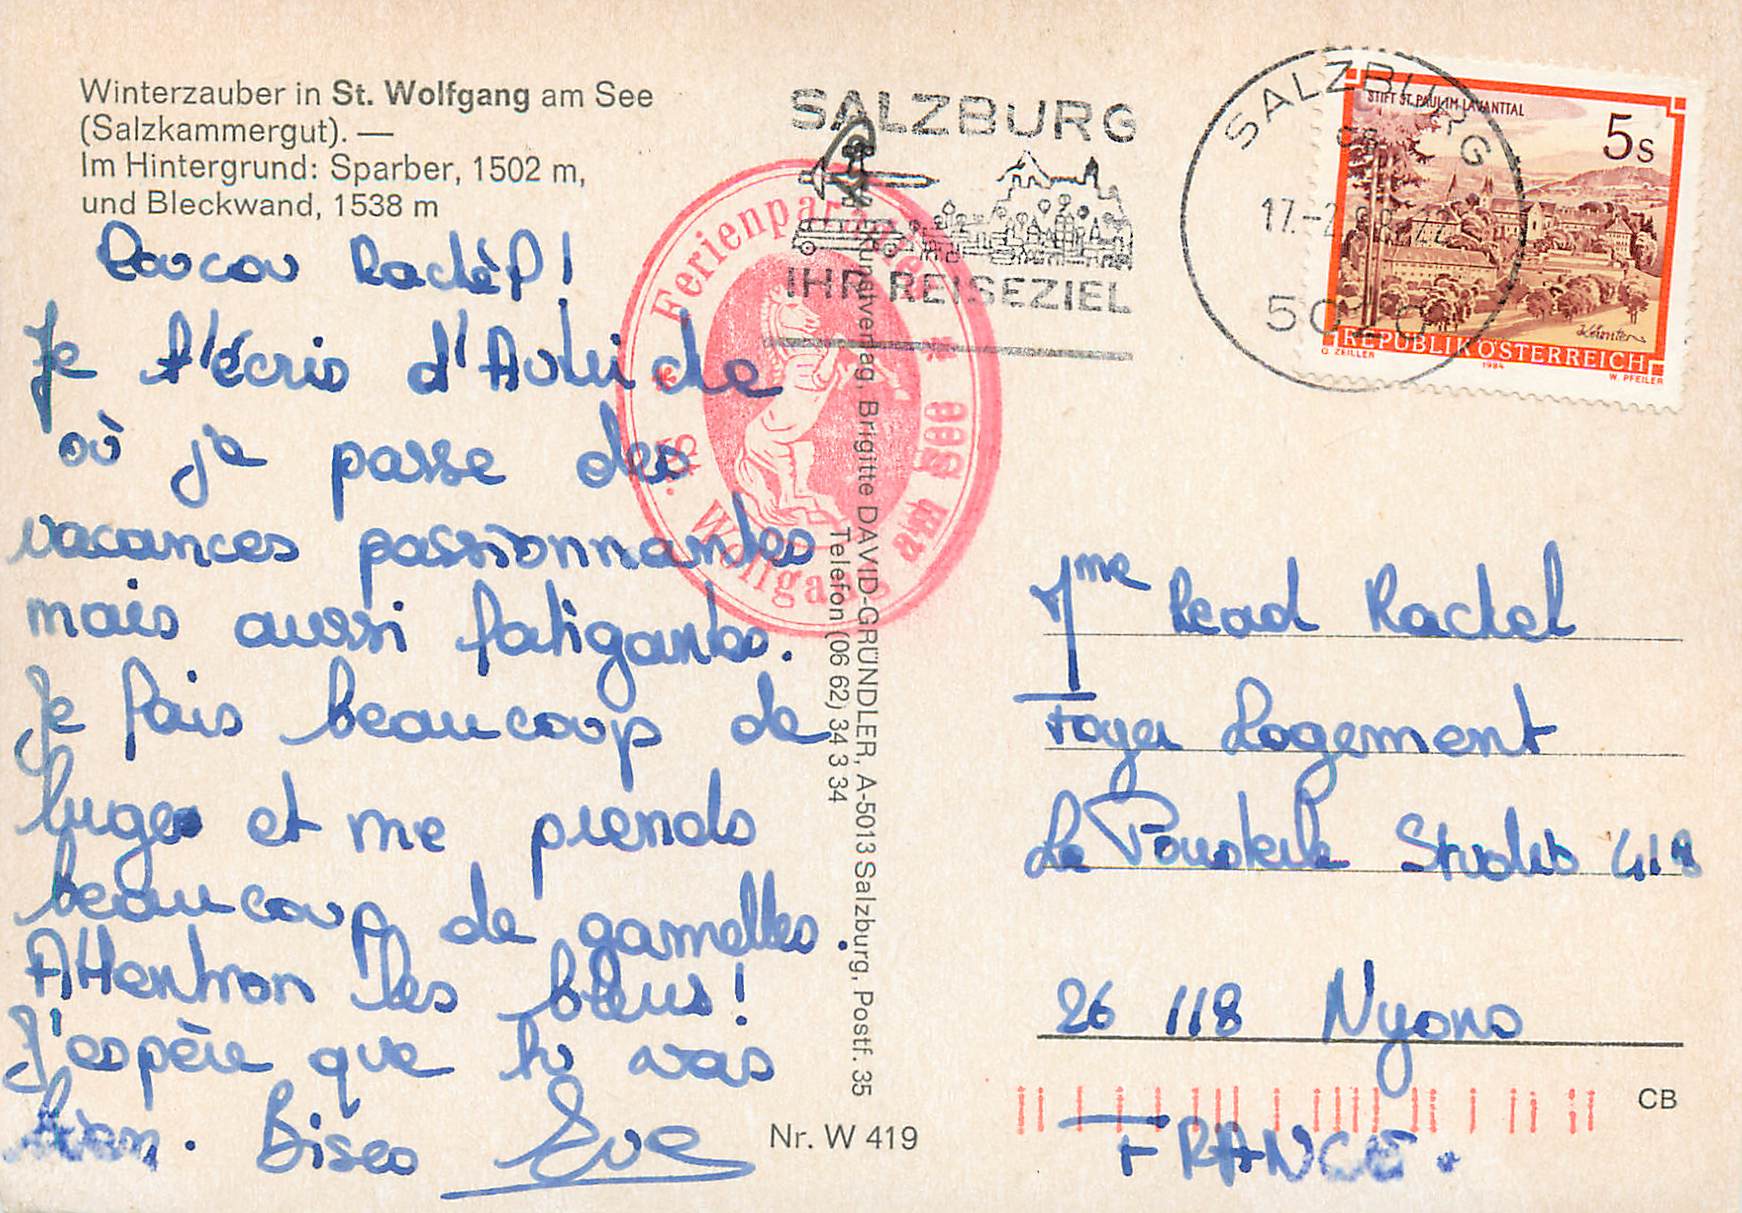 Winterzauber in St. Wolfgang am See
(Salzkammergut). —
Im Hintergrund: Sparber, 1502 m,
und Bleckwand, 1538 m
Coucou
Je t'écris d'Autriche
où je passe des
vacances passionnantes
mais aussi fatigantes.
Je fais beaucoup de
luge et me prends
beaucoup de gamelles.
Attention les bleus!
J'espère que tu vas
bien. Bises Eve
SALZBURG
IHR REISEZIEL
Ferienparadies
St. Wolfgang am See
Kunstverlag, Brigitte DAVID-GRÜNDLER, A-5013 Salzburg, Postf. 35
Telefon (06 62) 34 3 34
Nr. W 419
SALZBURG
17.-2
5020
STIFT ST. PAUL IM LAVANTTAL
5s
Kärnten
REPUBLIK ÖSTERREICH
G. ZEILLER 1984 W. PFEILER
Mme Read Rachel
Foyer Logement
La Pousterle Studio 418
26 118 Nyons
FRANCE.
CB